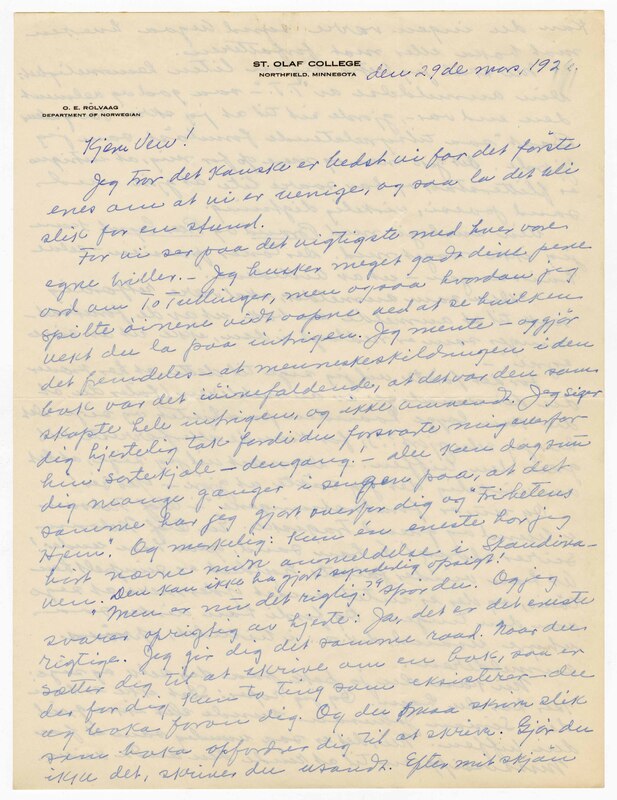 ST. OLAF COLLEGE
NORTHFIELD, MINNESOTA
den 29de mars, 192
O. E. ROLVAAG
DEPARTMENT OF NORWEGIAN
Kjære Ven!
Jeg tror det kanske er bedst vi for det første
enes om at vi er uenige, og saa la det bli
slik for en stund.
For vi ser paa det vigtigste med hver vore
egne briller. – Jeg husker meget godt dine pene
ord om To Tullinger, men ogsaa hvordan jeg
spilte öinene vidt oapne ved at se hvilken
vekt du la paa intrigen. Jeg mente – og gjör
det fremdeles – at menneskeskildningen i den
bok var det iöinefaldende, at det var den som
skapte hele intrigen, og ikke omvendt. Jeg siger
dig hjertelig tak fordi du forsvarte mig overfor
hin sortekjole – dengang! – du kan dog
dig mange ganger i paa, at det
samme har jeg gjort overfor dig og "Frihetens
Hjem". Og merkelig: Kun én eneste har jeg
hört nævne min anmeldelse i Skandina-
ven. Den kan ikke ha gjort synderlig opsigt!
"Men er nu det rigtig?" spör du. Og jeg
svarer oprigtig av hjerte: Ja, det er det eneste
rigtige. Jeg gir dig det samme raad. Naar du
sætter dig til at skrive om en bok, saa er
der for dig kun to ting som eksisterer – du
og boka foran dig. Og du maa skrive slik
som boka opfordrer dig til at skrive. Gjör du
ikke det, skriver du usandt. Efter mit skjön